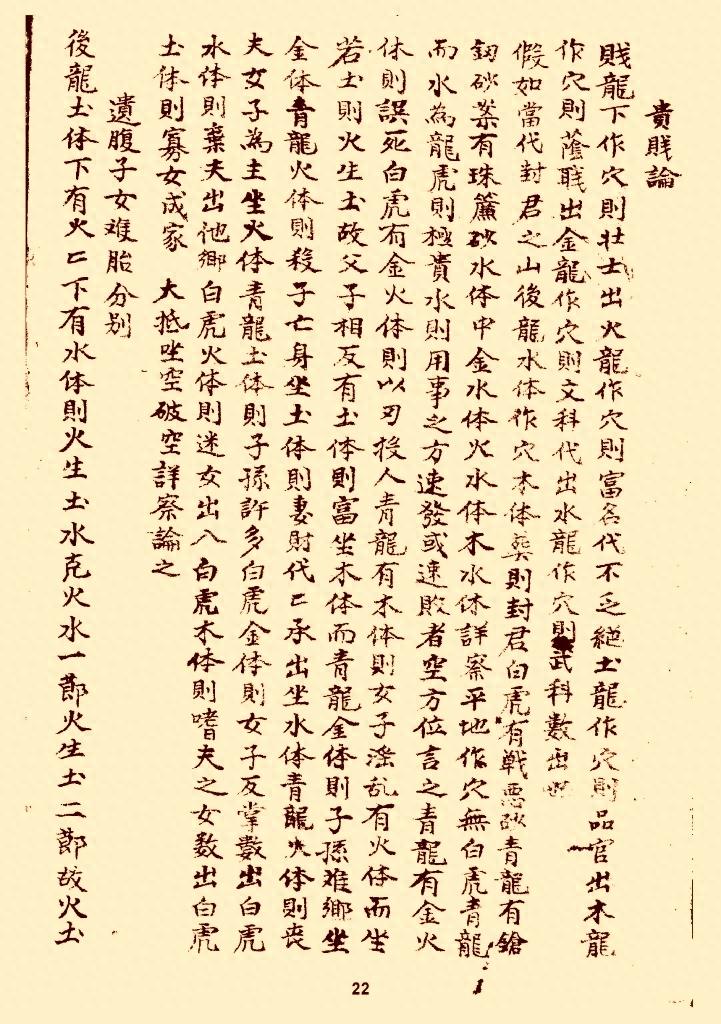 貴賎論
賎龍下作穴則壮士出火龍作穴則富名代不乏絕土龍作穴則品官出木龍
作穴則蔭職出金龍作穴則文科代出水龍作穴則武科數出
假如當代封君之山後龍水体作穴木体葬則封君白虎有戦悪砂青龍有鎗
釼砂案有珠簾砂水体中金水体火水体木水体詳察平地作穴無白虎青龍
而水為龍虎則極貴水則用事之方速發或速敗者空方位言之青龍有金火
体則誤死白虎有金火体則以刃投人青龍有木体則女子滛乱有火体而坐
若土則火生土故父子相反有土体則富坐木体而青龍金体則子孫难鄉坐
金体青龍火体則殺子亡身坐土体則妻財代〻承出坐水体青龍火体則丧
夫女子為主坐火体青龍土体則子孫許多白虎金体則女子反掌數出白虎
水体則棄夫出他鄉白虎火体則迷女出入白虎木体則嗜夫之女数出白虎
土体則寡女成家 大抵坐空破空詳察論之
遺腹子女难胎分别
後龍土体下有火〻下有水体則火生土水克火水一節火生土二節故火土
22